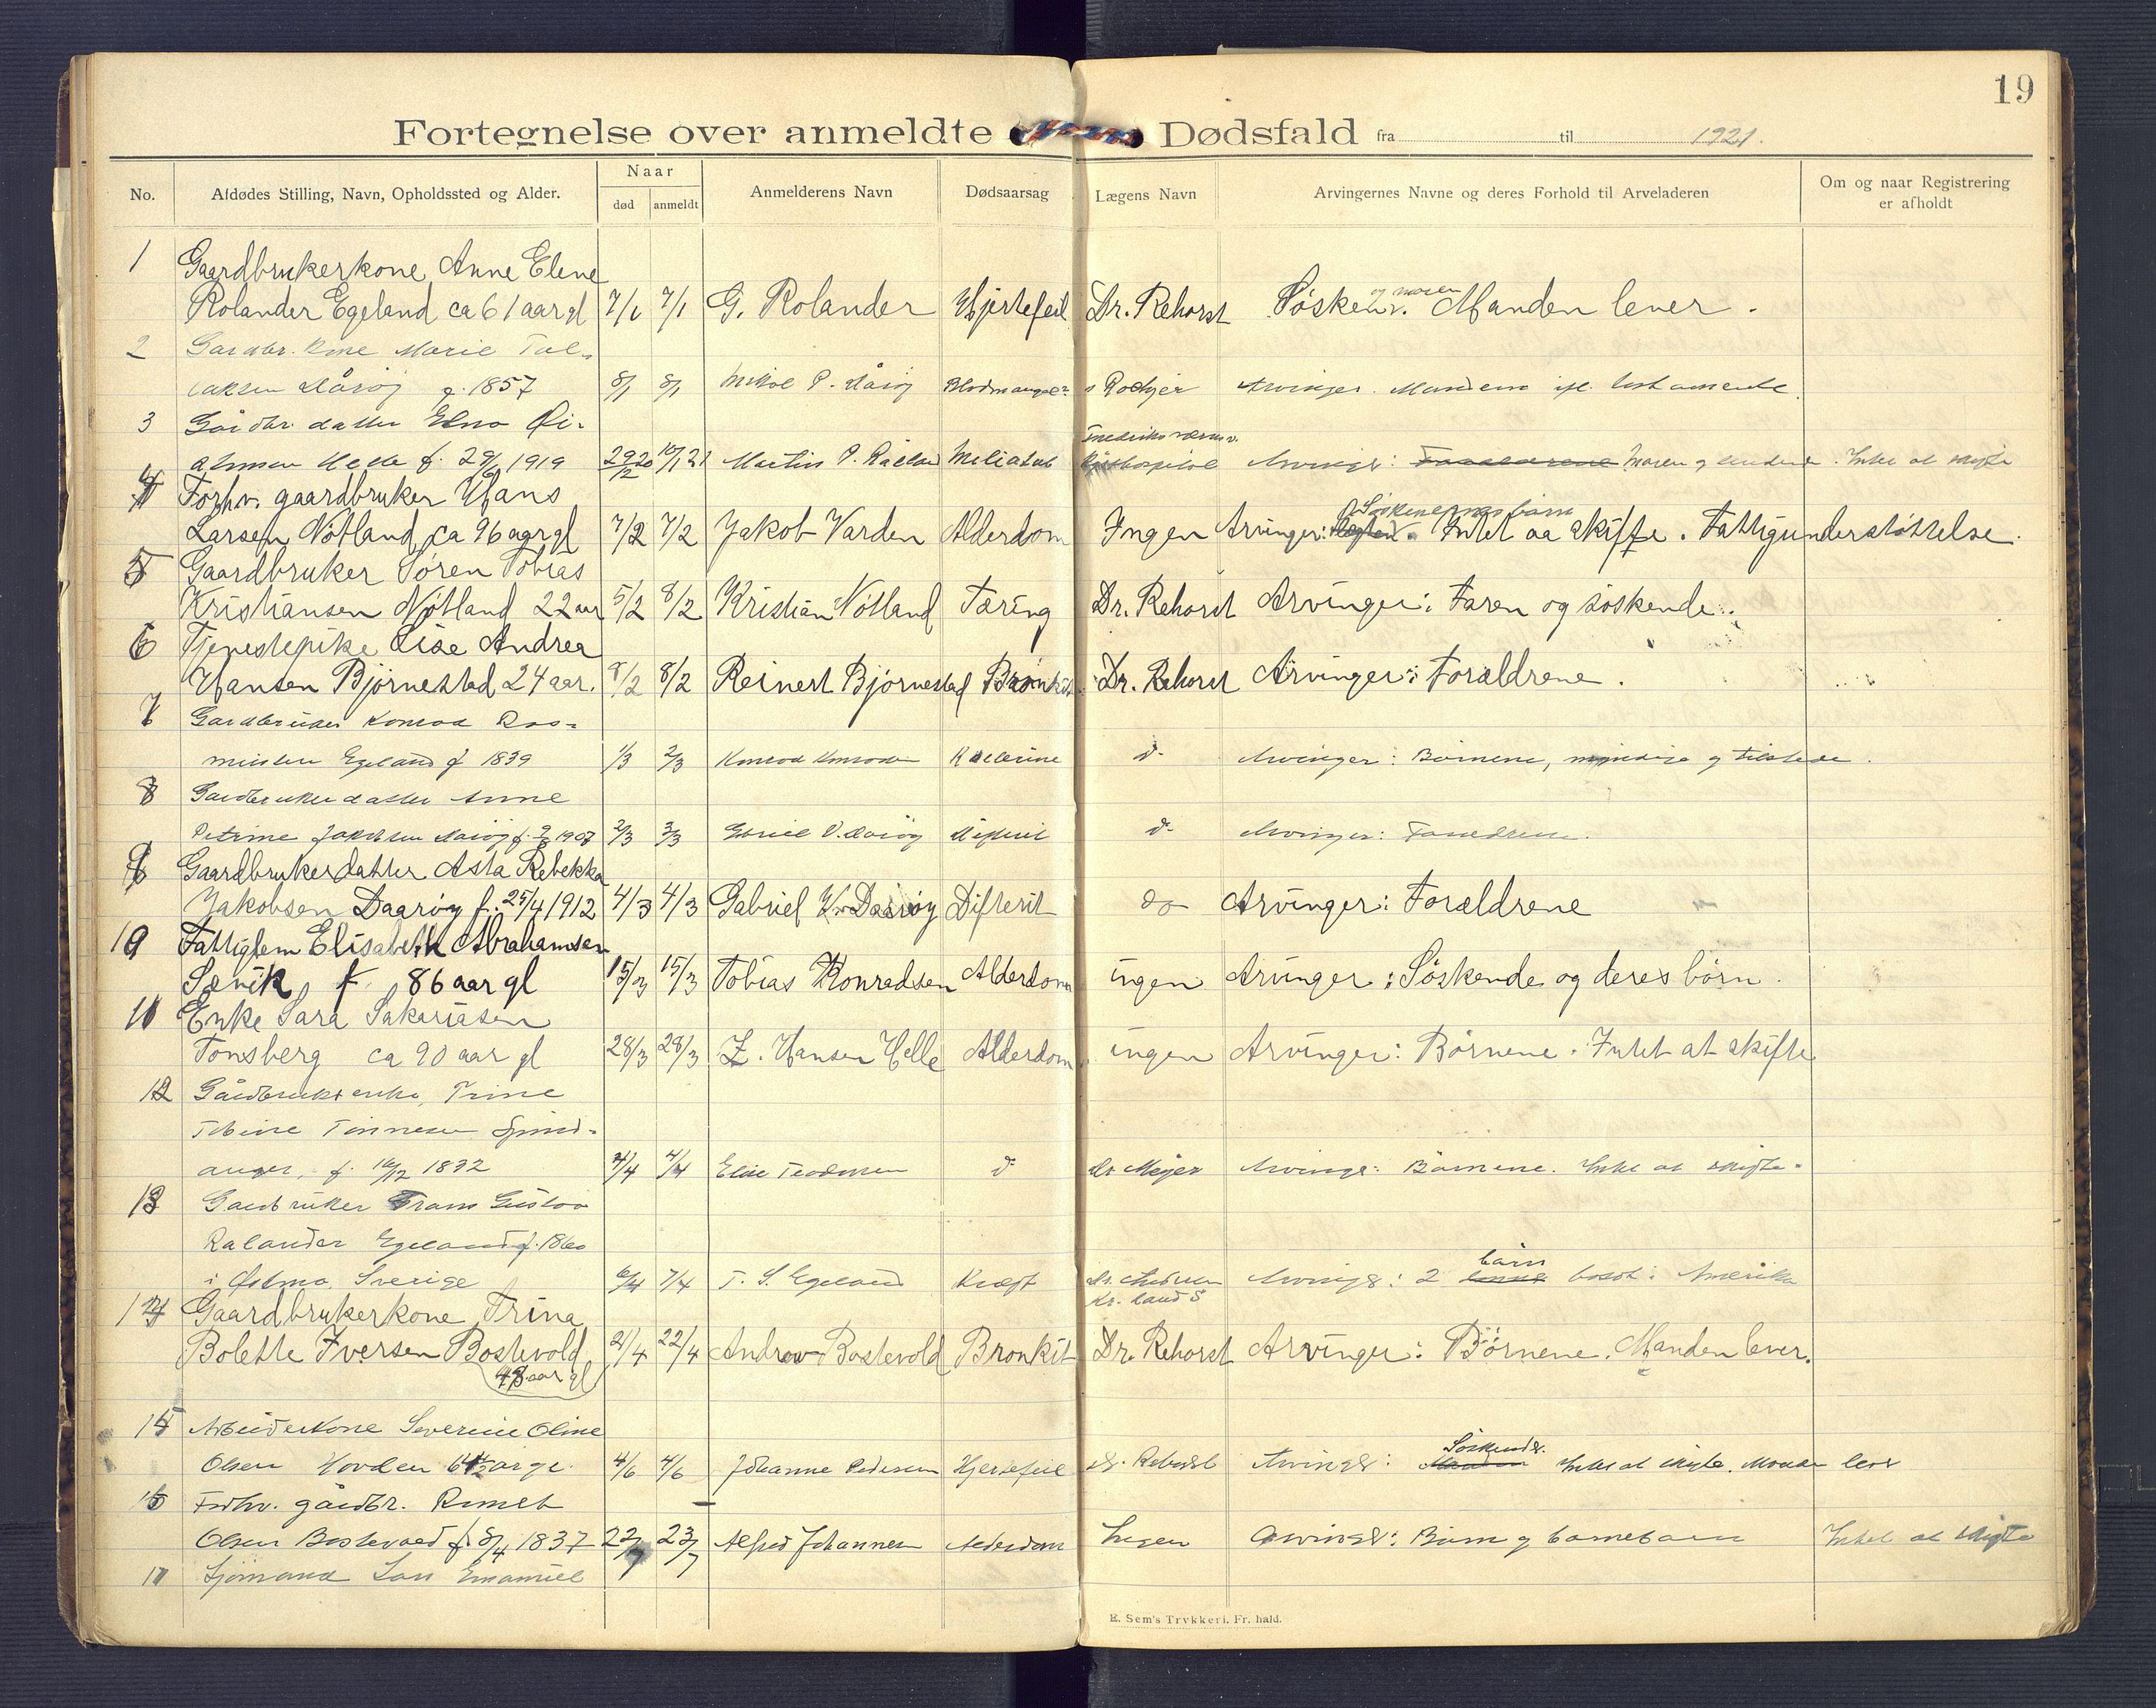 19
Fortegnelse over anmeldte Dødsfald fra til 1921.
No. Afdødes Stilling, Navn, Opholdssted og Alder. Naar død anmeldt Anmelderens Navn Dødsaarsag Lægens Navn Arvingernes Navne og deres Forhold til Arveladeren Om og naar Registrering er afholdt
1 Gaardbrukerkone Anne Elene
Rolander Egeland ca 61 aar gl 7/1 7/1 G. Rolander Hjertefeil Dr. Rehorst Søsken. og moren Manden lever.
2 Gardbr. kone Marie Tol-
laksen Dårøy f. 1857 8/1 8/1 Mikal P. Dårøy Blodmangel Arvinger. Manden ifl. testamente.
3 Gårdbr. datter Elna
Helle f. 29/ 1919 29/12 20 10/1 21 Martin P. Fredriksværns Arvinger: Moren og . Intet at skifte
4 Forhv. gaardbruker Hans
Larsen Nøtland, ca 96 aar gl 7/2 7/2 Jakob Varden Alderdom Ingen Arvinger: Søskenernes børn Intet aa skifte. Fattigunderstøttelse.
5 Gaardbruker Søren Tobias
Kristiansen Nøtland 22 aar 5/2 8/2 Kristian Nøtland Tæring Dr. Rehorst Arvinger: Faren og søskende.
6 Tjenestepike Lise Andrea
Hansen Bjørnestad 24 aar. 8/2 8/2 Reinert Bjørnestad Bronkit Dr. Rehorst Arvinger: Forældrene.
7 Gardbruker Konrad Ras-
mussen Egeland f 1839 1/3 2/3 Konrad Konradsen d- Arvinger: Børnene, myndige og tilstede.
8 Gardbrukerdatter Anne
Petrine Jakobsen Darøy f. 1907 2/3 3/3 Gabriel V. Darøy Difterit d- Arvinger: Forældrene.
9 Gaardbrukerdatter Asta Rebekka
Jakobsen Daarøy f. 25/4 1912 4/3 4/3 Gabriel V. Daarøy Difterit do Arvinger: Forældrene
10 Fattiglem Elisabeth Abrahamsen
Sævik f. 86 aar gl 15/3 15/3 Tobias Konradsen Alderdom ingen Arvinger: Søskende og deres børn.
11 Enke Sara Sakariasen
Tonsberg ca 90 aar gl 28/3 28/3 Z. Hansen Helle Alderdom ingen Arvinger: Børnene. Intet at skifte
12 Gårdbrukerenke, Trine
Tobine Tønnesen Spind-
anger, f. 16/12 1832 4/4 4/4 Elise Teodorsen d- Dr Meyer Arvinger: Børnene. Intet at skifte.
13 Gardbruker Frans Gustav
Rolander Egeland f. 1860
i Sverige 6/4 7/4 T. S. Egeland Kræft Dr. Kr. sand S Arvinger: 2 børn bosat i Amerika
14 Gaardbrukerkone Trina
Bolette Iversen Bostevold 21/4 22/4 Andrew Bostevold Bronkit Dr. Rehorst Arvinger: Børnene. Manden lever.
48 aar gl
15 Arbeiderkone Severine Oline
Olsen Hovden år gl. 4/6 4/6 Johanne Pedersen Hjertefeil dr. Rehorst Arvinger: Søskende. Intet at skifte. Manden lever
16 Forhv. gårdbr. Reinert
Olsen Bostevold f. 8/4 1837 22/7 23/7 Alfred Johannesen Alderdom Ingen Arvinger: Børn og barnebarn Intet at skifte
17 Sjømand Lars Emanuel
E. Sem's Trykkeri. Fr. hald.